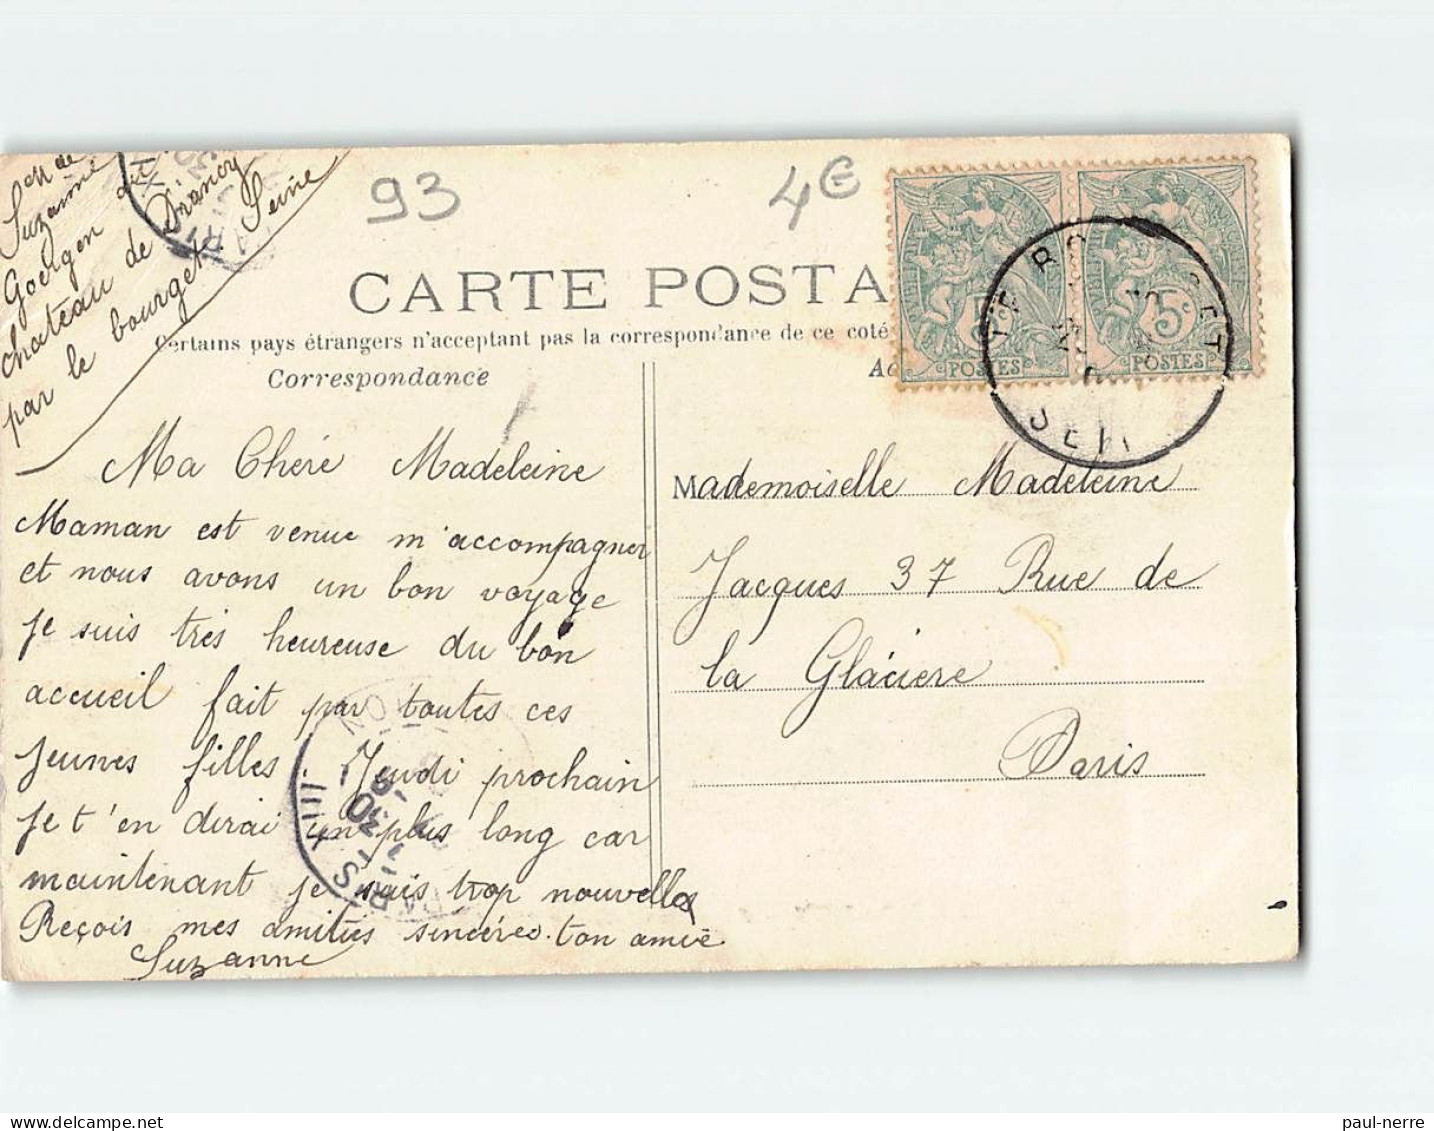 Mde
Suzanne
Goergen dit
chateau de Drancy
par le bourget. Seine
93
4€
CARTE POSTA
Certains pays étrangers n'acceptant pas la correspondance de ce coté
Correspondance
Ma Chéré Madeleine
Maman est venue m'accompagner
et nous avons un bon voyage
je suis très heureuse du bon
accueil fait par toutes ces
jeunes filles Jeudi prochain
je t'en dirai un plus long car
maintenant je suis trop nouvelle
Reçois mes amitiés sincéres. ton amie
Suzanne
5c
POSTES
5c
POSTES
LE BOURGET
SEINE
Mademoiselle Madeleine
Jacques 37 Rue de
la Gláciere
Paris
PARIS XIII
1 30
paul-nerre